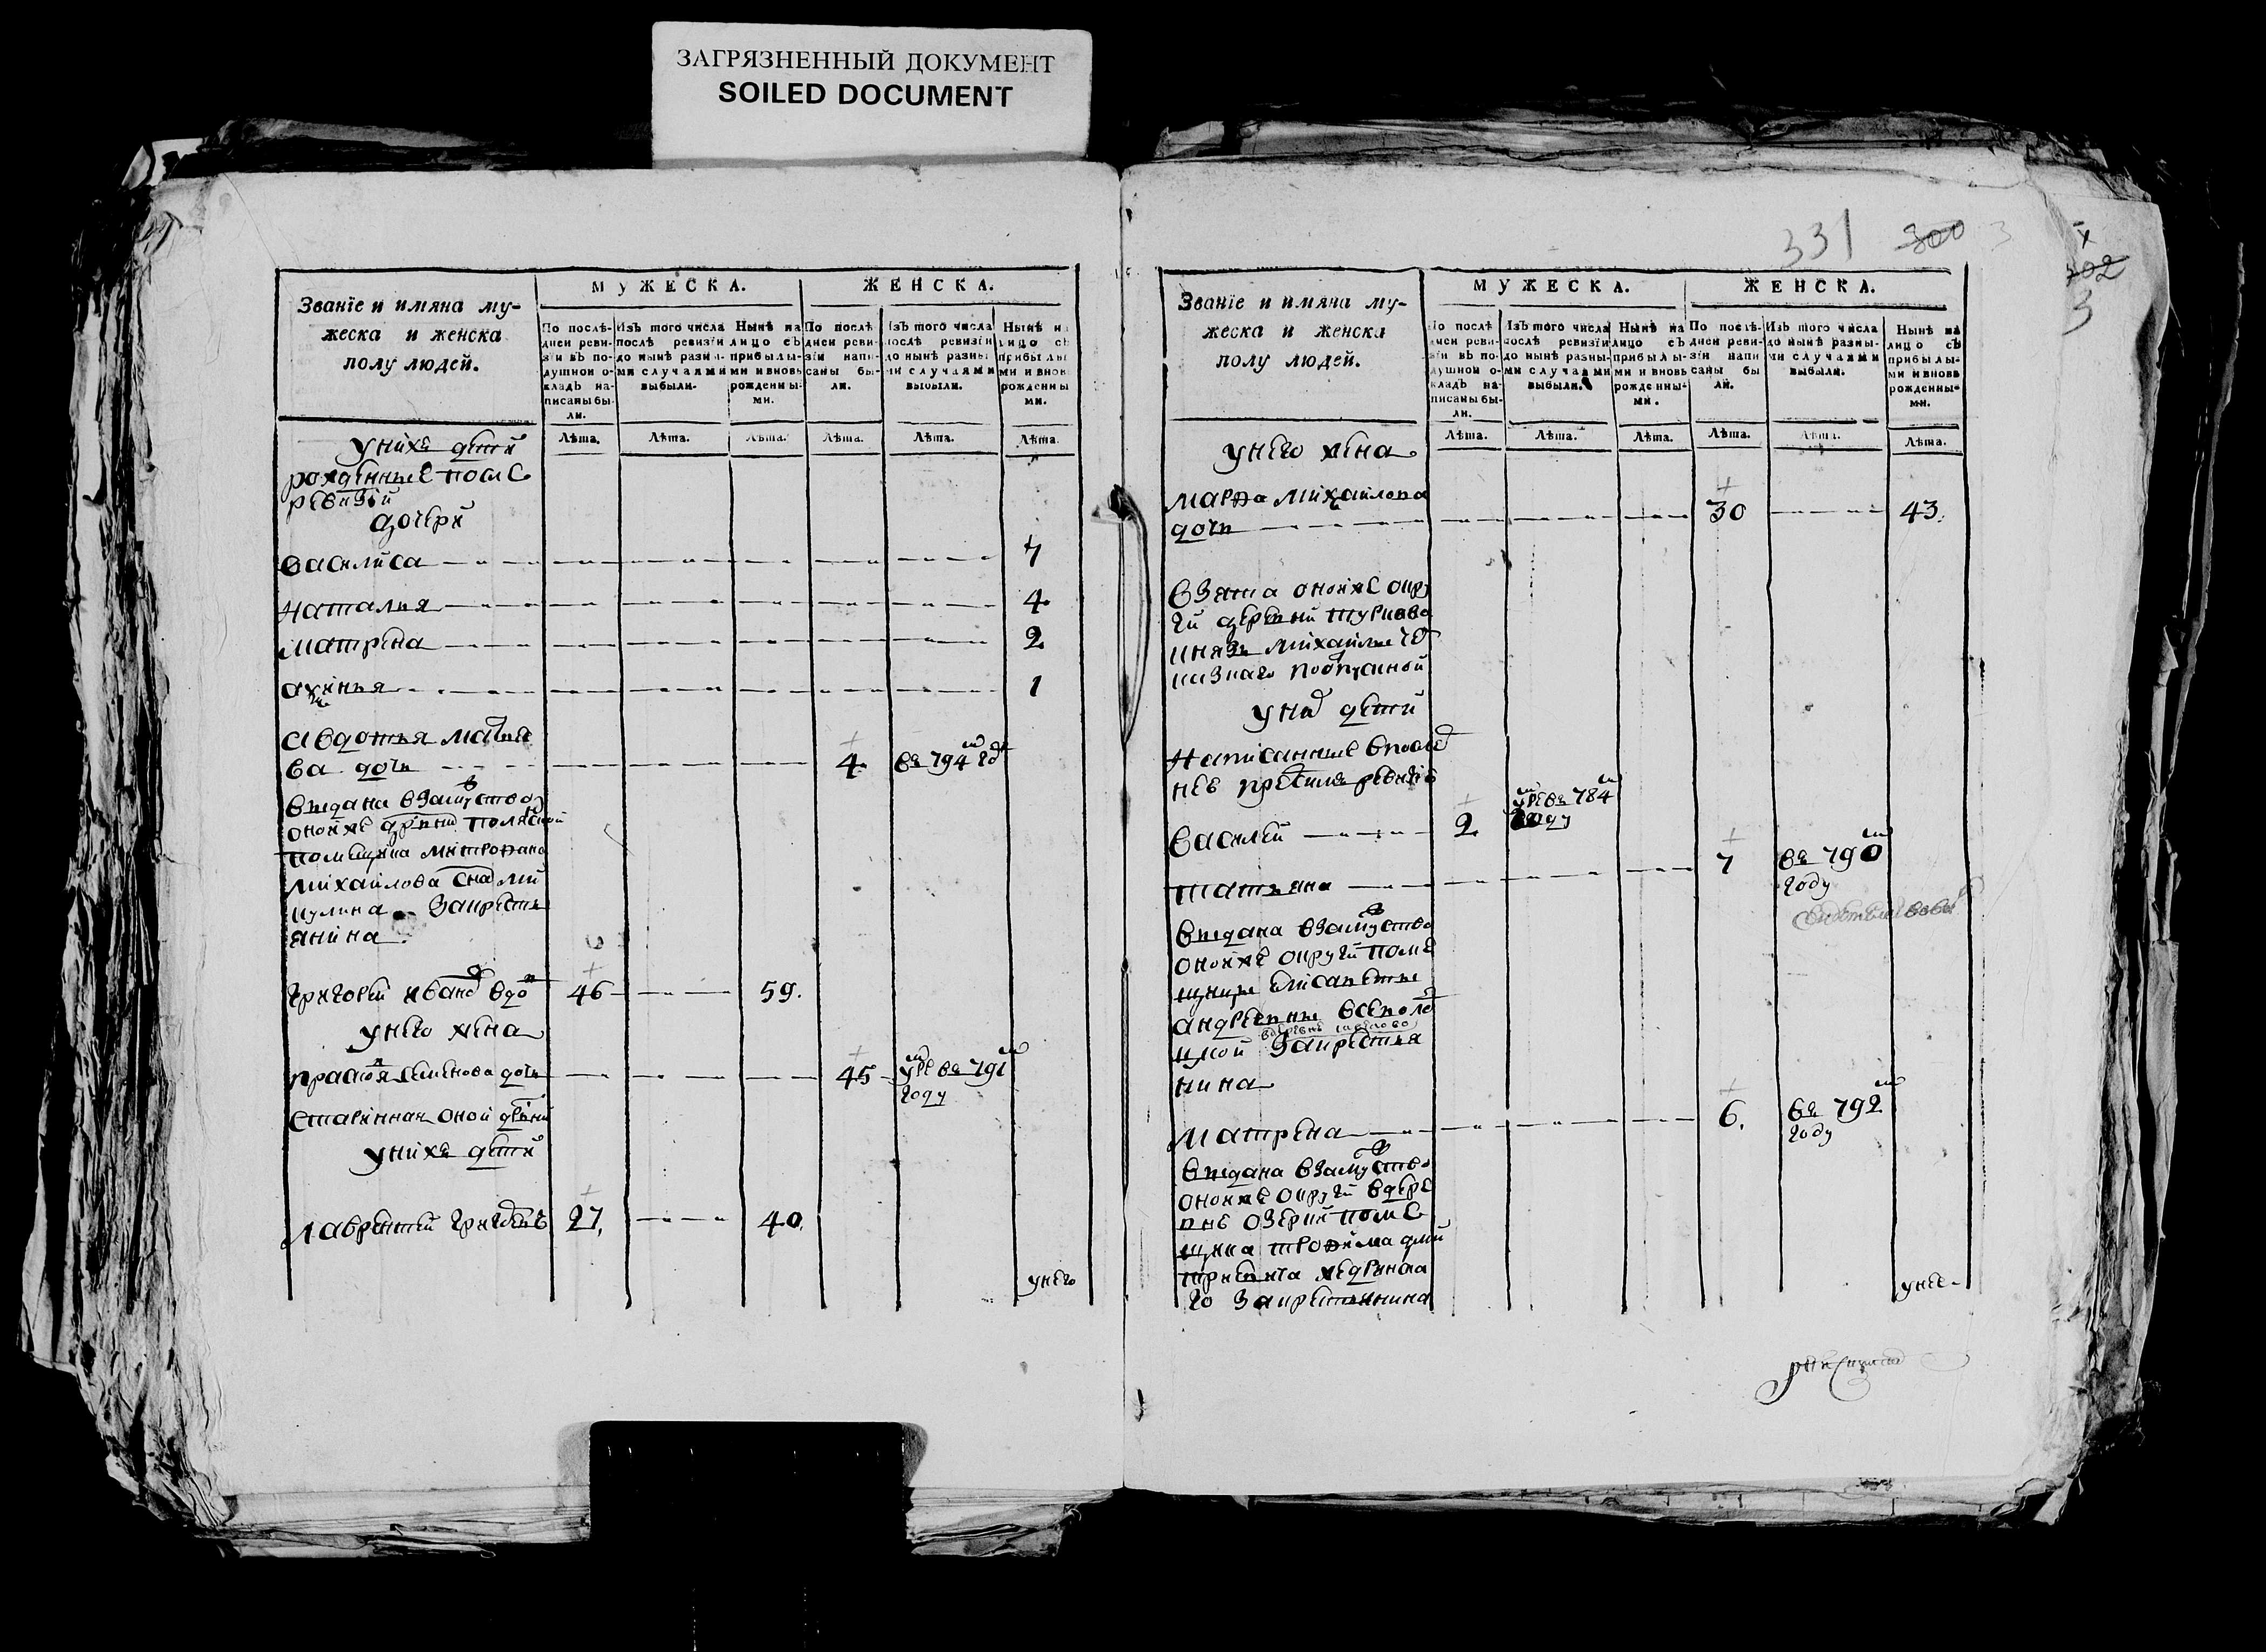 ЗАГРЯЗНЕННЫЙ ДОКУМЕНТ
SOILED DOCUMENT
Званїе и имяна му-
жеска и женска
полу людей.
МУЖЕСКА.
ЖЕНСКА.
По послѣ-
дней реви-
зїи въ по-
душной о-
кладъ на-
писаны бы-
ли.
Изъ того числа
послѣ ревизїи
до нынѣ разны-
ми случаями
выбыли.
Нынѣ на
лицо съ
прибылы-
ми и вновь
рожденны-
ми.
По послѣ
дней реви-
зїи напи-
саны бы-
ли.
Изъ того числа
послѣ ревизїи
до нынѣ разны
ми случаями
выбыли.
Нынѣ на
лицо съ
прибылы
ми и вновь
рожденны
ми.
Лѣта. Лѣта. Лѣта. Лѣта. Лѣта. Лѣта.
у нихъ дети
рожденные после
ревизїи
дочери
василиса 7
наталья 4
матрена 2
аксинья 1
авдотья матве
ва дочь 4 въ 794м год
выдана взамужство
оной же дрвни полской
помещика митрофана
михайлова сна ми
кулина закресть
янина
григорей иванов вдов 46 59.
у него жена
прасковя семенова дочь 45 уре въ 791м
году
старинная оной дрвни
у нихъ дети
лаврентей григорьев 27. 40.
у него
331 300 3
х
302
3
Званїе и имяна му-
жеска и женска
полу людей.
МУЖЕСКА.
ЖЕНСКА.
По послѣ
дней реви-
зїи въ по-
душной о-
кладъ на-
писаны бы-
ли.
Изъ того числа
послѣ ревизїи
до нынѣ разны-
ми случаями
выбыли.
Нынѣ на
лицо съ
прибылы-
ми и вновь
рожденны-
ми.
По послѣ-
дней реви-
зїи напи
саны бы
ли.
Изъ того числа
до нынѣ разны-
ми случаями
выбыли.
Нынѣ на
лицо съ
прибылы-
ми и вновь
рожденны-
ми.
Лѣта. Лѣта. Лѣта. Лѣта. Лѣта. Лѣта.
у него жена
марфа михайлова
дочь 30 43.
взята оной же окру
ги деревни
князь михайлы
по отпускной
у них дети
написанные в послед
нее пред сим ревизїю
василей 2 уре въ 784м
году
татьяна 7 въ 790м
году
выдана взамужство
оной же округи поме
щицы елисаветы
андреевны всеволо
цкой закрестья
нина
матрена 6. въ 792м
году
выдана взамужство
оной же округи в дере
вне озерки поме
щика трофима дми
триевича
го закрестьянина
у нее-